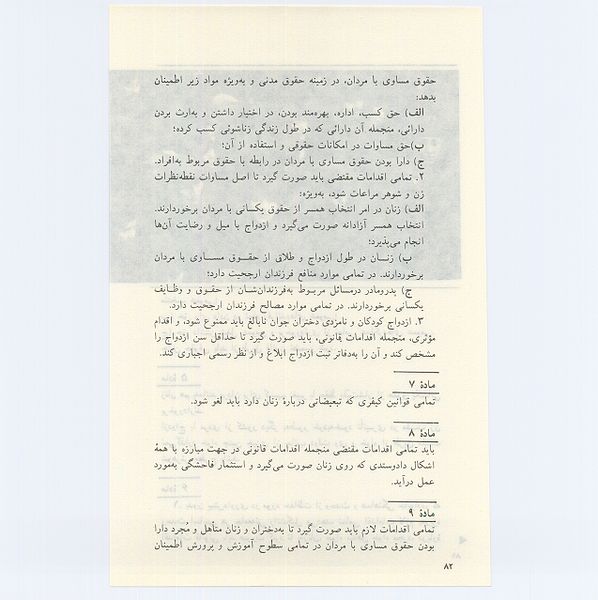 حقوق مساوی با مردان، در زمینه حقوق مدنی و به‌ویژه مواد زیر اطمینان
بدهد:
الف) حق کسب، اداره، بهره‌مند بودن، در اختیار داشتن و به‌ارث بردن
دارائی، منجمله آن دارائی که در طول زندگی زناشوئی کسب کرده؛
ب)حق مساوات در امکانات حقوقی و استفاده از آن؛
ج) دارا بودن حقوق مساوی با مردان در رابطه با حقوق مربوط به‌افراد.
۲. تمامی اقدامات مقتضی باید صورت گیرد تا اصل مساوات نقطه‌نظرات
زن و شوهر مراعات شود، به‌ویژه:
الف) زنان در امر انتخاب همسر از حقوق یکسانی با مردان برخوردارند.
انتخاب همسر آزادانه صورت می‌گیرد و ازدواج با میل و رضایت آن‌ها
انجام می‌پذیرد؛
ب) زنان در طول ازدواج و طلاق از حقوق مساوی با مردان
برخوردارند. در تمامی موارد منافع فرزندان ارجحیت دارد؛
ج) پدرومادر درمسائل مربوط به‌فرزندان‌شان از حقوق و وظایف
یکسانی برخوردارند. در تمامی موارد مصالح فرزندان ارجحیت دارد.
۳. ازدواج کودکان و نامزدی دختران جوان نابالغ باید ممنوع شود، و اقدام
مؤثری، منجمله اقدامات قانونی، باید صورت گیرد تا حداقل سن ازدواج را
مشخص کند و آن را به‌دفاتر ثبت ازدواج ابلاغ و از نظر رسمی اجباری کند.
مادهٔ ۷
تمامی قوانین کیفری که تبعیضاتی دربارهٔ زنان دارد باید لغو شود.
مادهٔ ۸
باید تمامی اقدامات مقتضی منجمله اقدامات قانونی در جهت مبارزه با همهٔ
اشکال دادوستدی که روی زنان صورت می‌گیرد و استثمار فاحشگی به‌مورد
عمل درآید.
مادهٔ ۹
تمامی اقدامات لازم باید صورت گیرد تا به‌دختران و زنان متأهل و مُجرد دارا
بودن حقوق مساوی با مردان در تمامی سطوح آموزش و پرورش اطمینان
۸۲